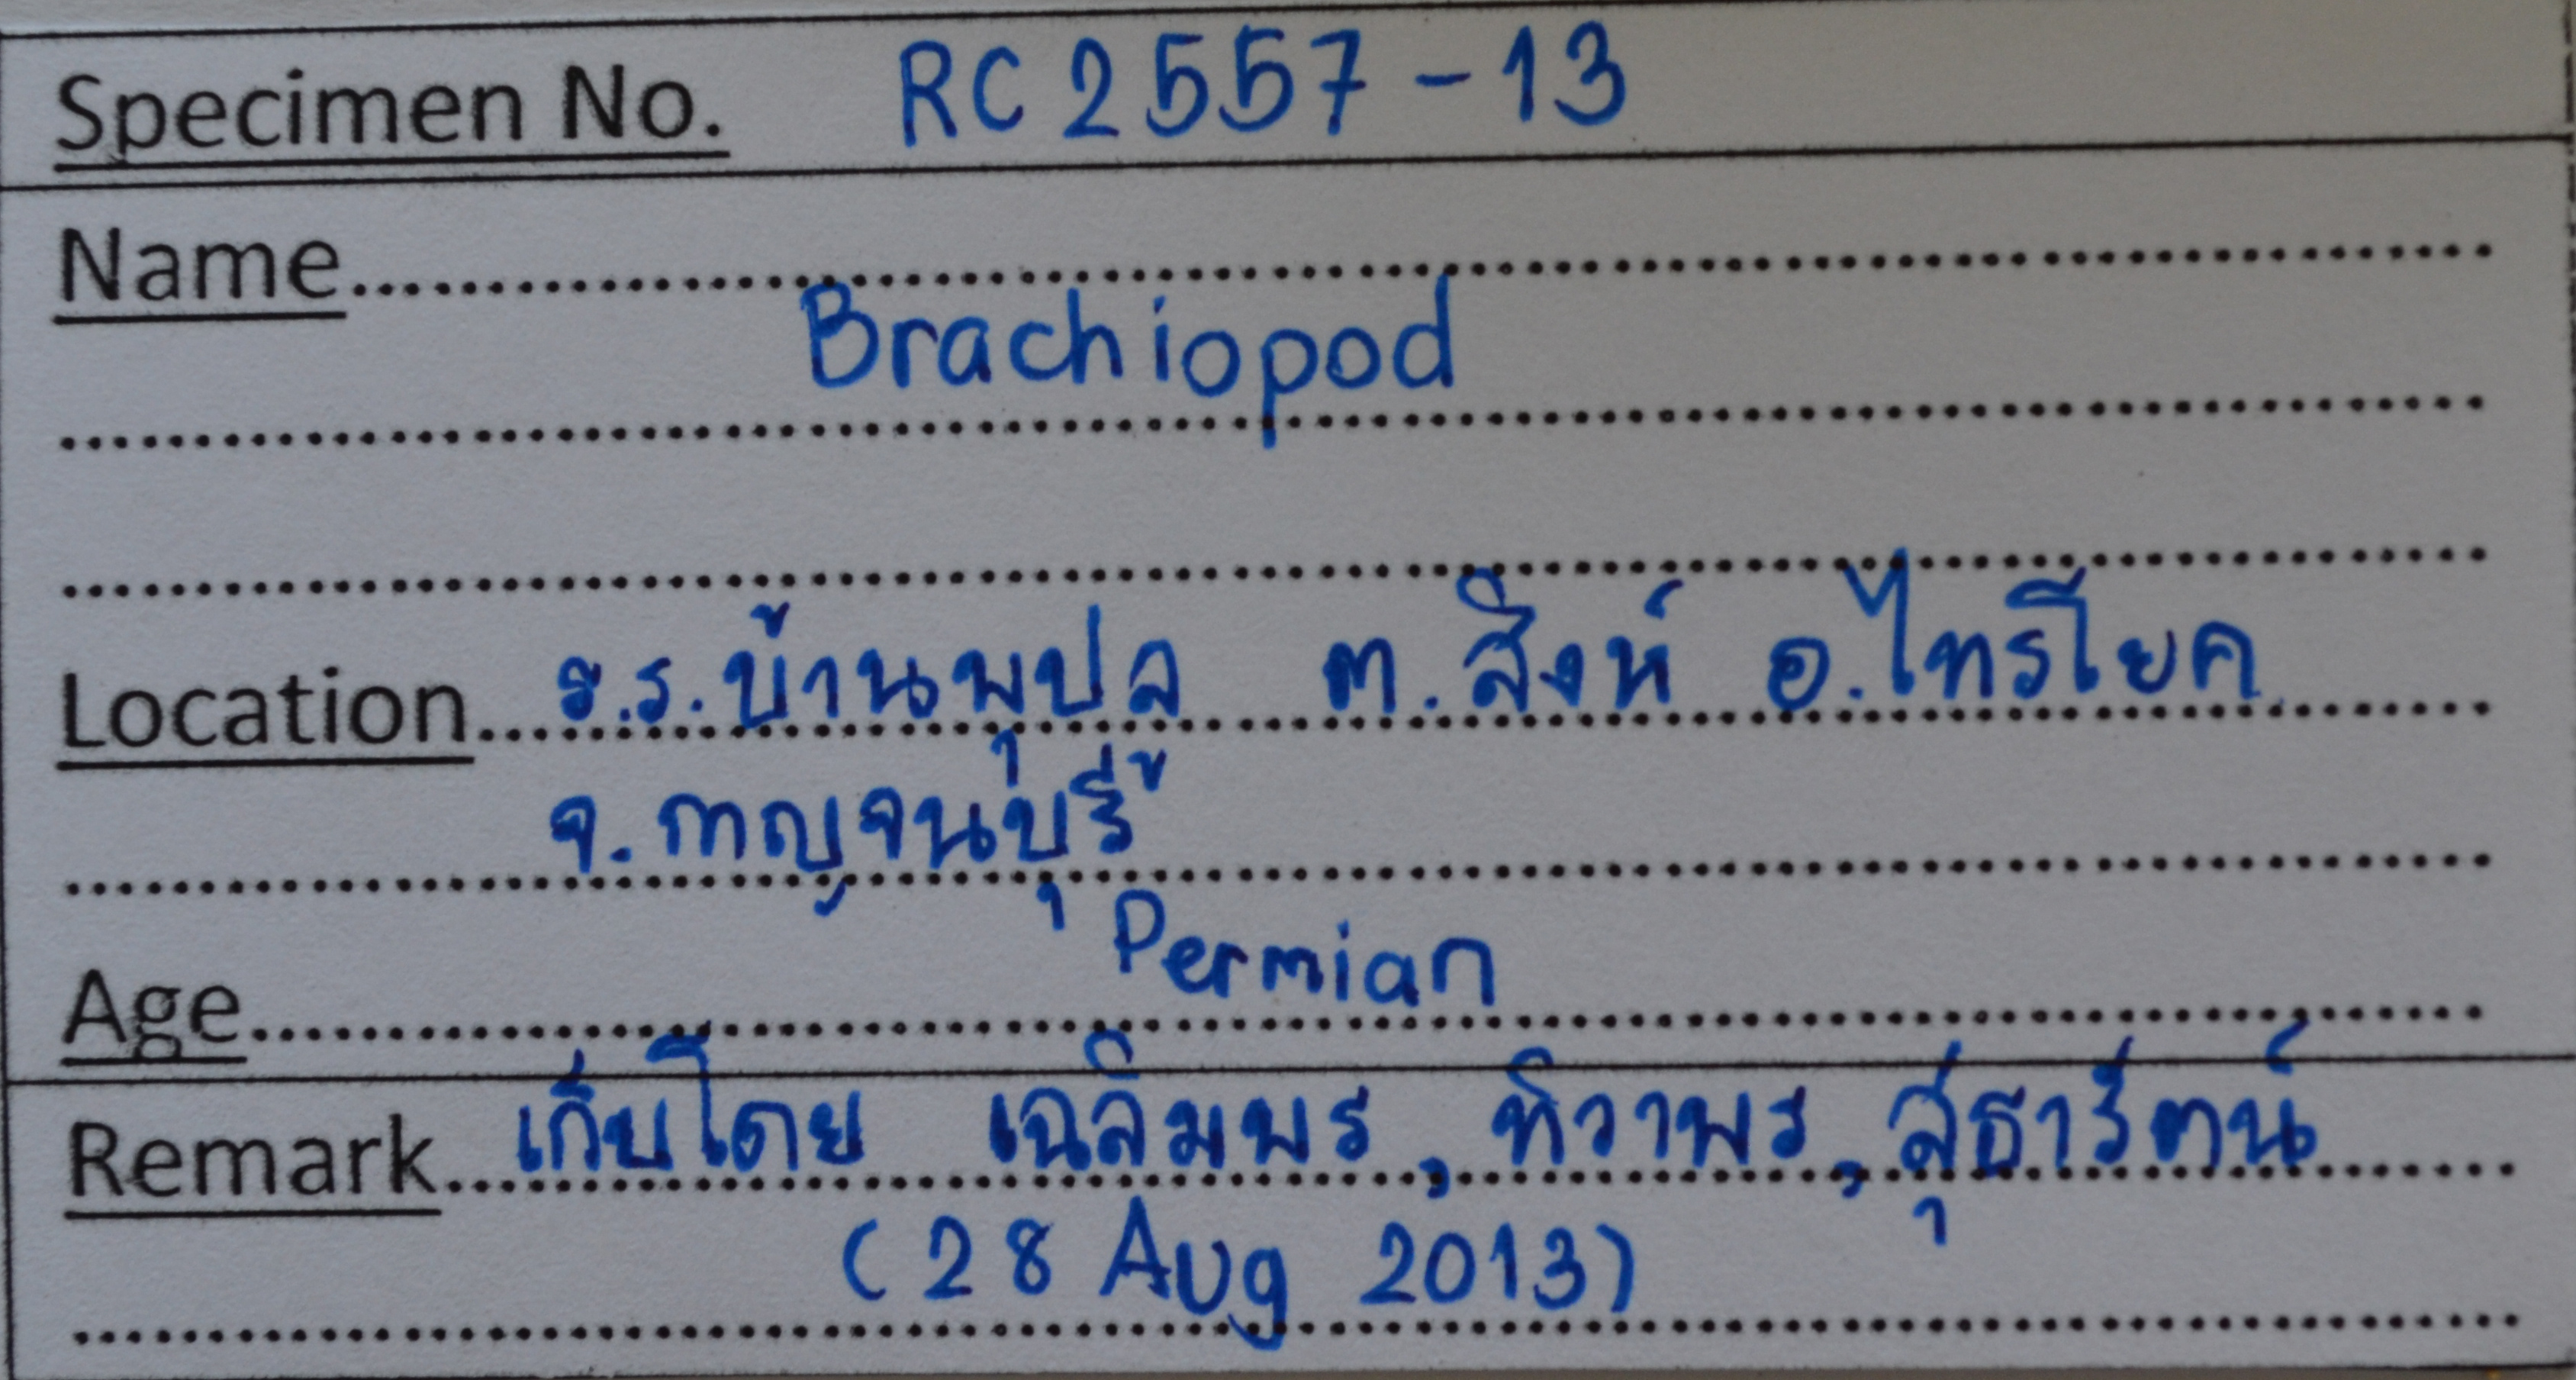 Specimen No. RC2557-13
Name
Brachiopod
Location ร.ร.บ้านพุปล ต.สิงห์ อ.ไทรโยค
จ.กาญจนบุรี
Age Permian
Remark เก็บโดย เฉลิมพร, ทิวาพร, สุธารัตน์
(28 Aug 2013)